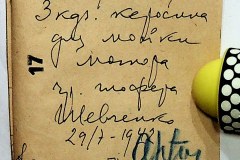 3 кдг. керосина
для мойки
мотора
гр. шофера
Шевченко
29/7 - 1942
17